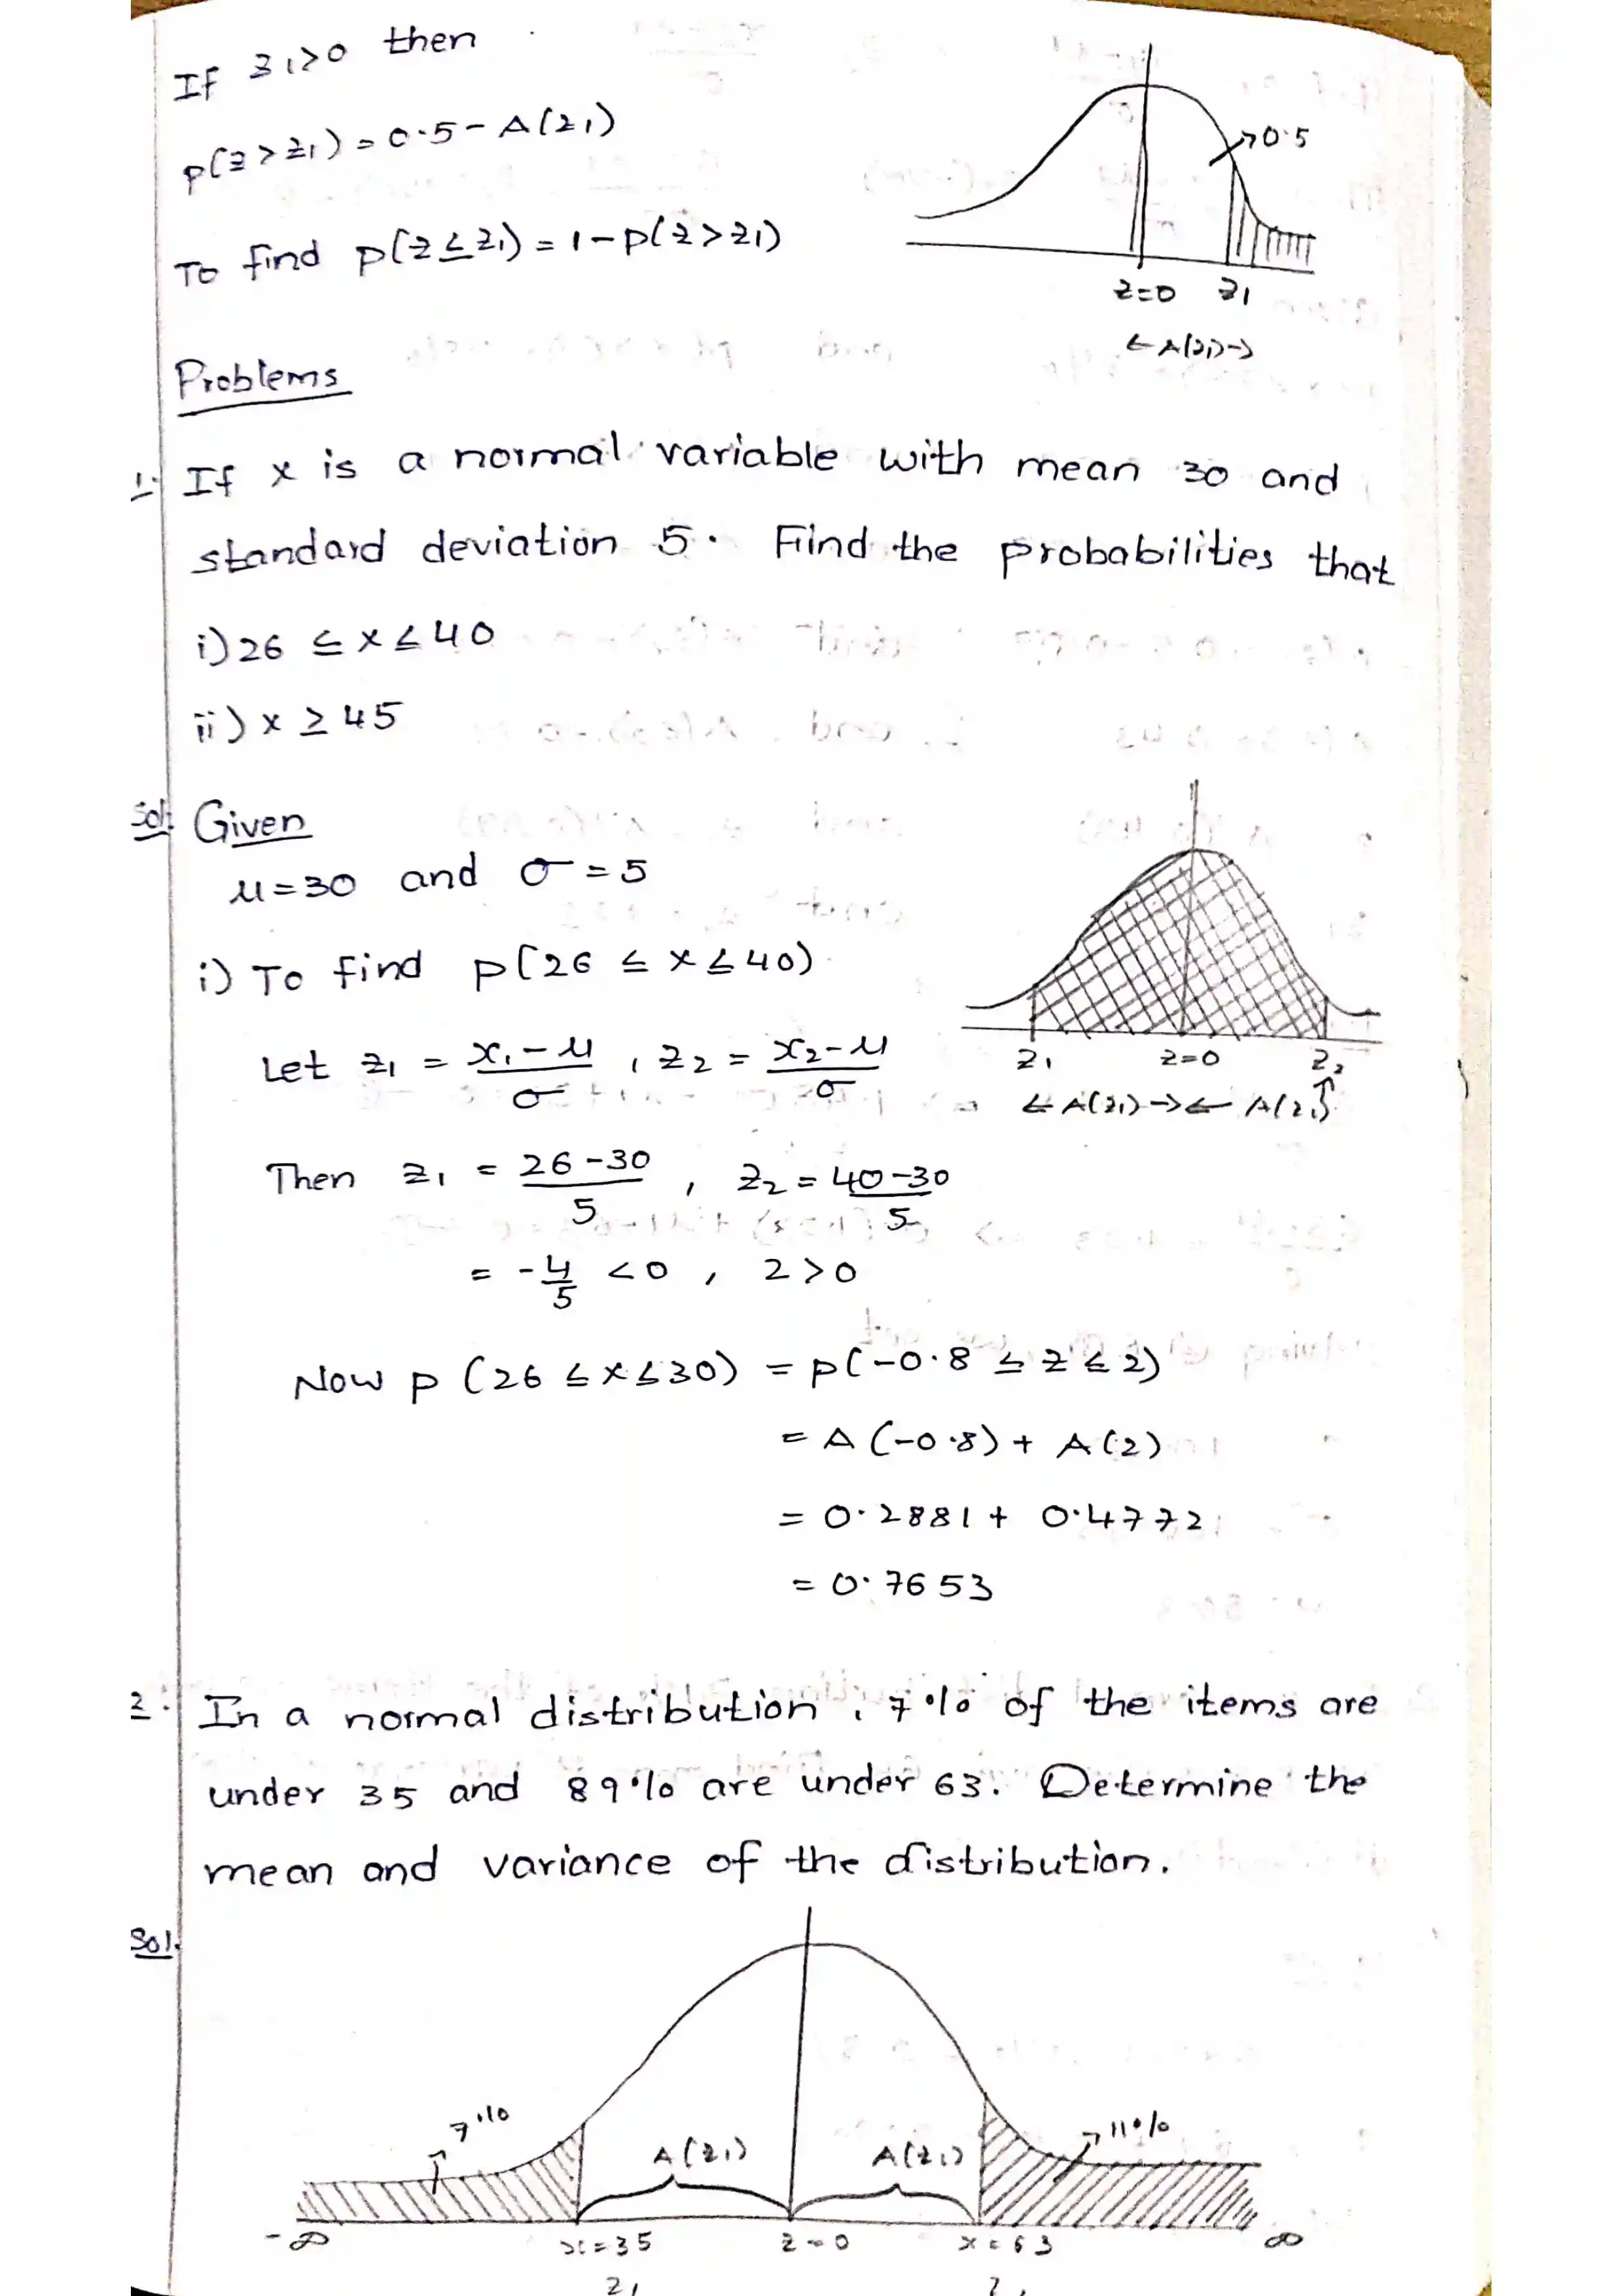 If z₁>0 then
p(z > z₁) = 0.5 - A(z₁)
To find p(z ≤ z₁) = 1 - p(z > z₁)
0.5
z=0 z₁
← A(z₁) →
Problems
1. If x is a normal variable with mean 30 and
standard deviation 5. Find the probabilities that
i) 26 ≤ x ≤ 40
ii) x ≥ 45
Sol: Given
μ = 30 and σ = 5
i) To find p(26 ≤ x ≤ 40)
Let z₁ = x₁-μ/σ , z₂ = x₂-μ/σ
z₁ z=0 z₂
← A(z₁) → ← A(z₂)
Then z₁ = 26-30/5 , z₂ = 40-30/5
= -4/5 < 0 , 2 > 0
Now p (26 ≤ x ≤ 30) = p(-0.8 ≤ z ≤ 2)
= A (-0.8) + A (2)
= 0.2881 + 0.4772
= 0.7653
2. In a normal distribution, 7% of the items are
under 35 and 89% are under 63. Determine the
mean and variance of the distribution.
Sol.
7% A(z₁) A(z₁) 11%
-∞ x=35 z=0 x=63 ∞
z₁